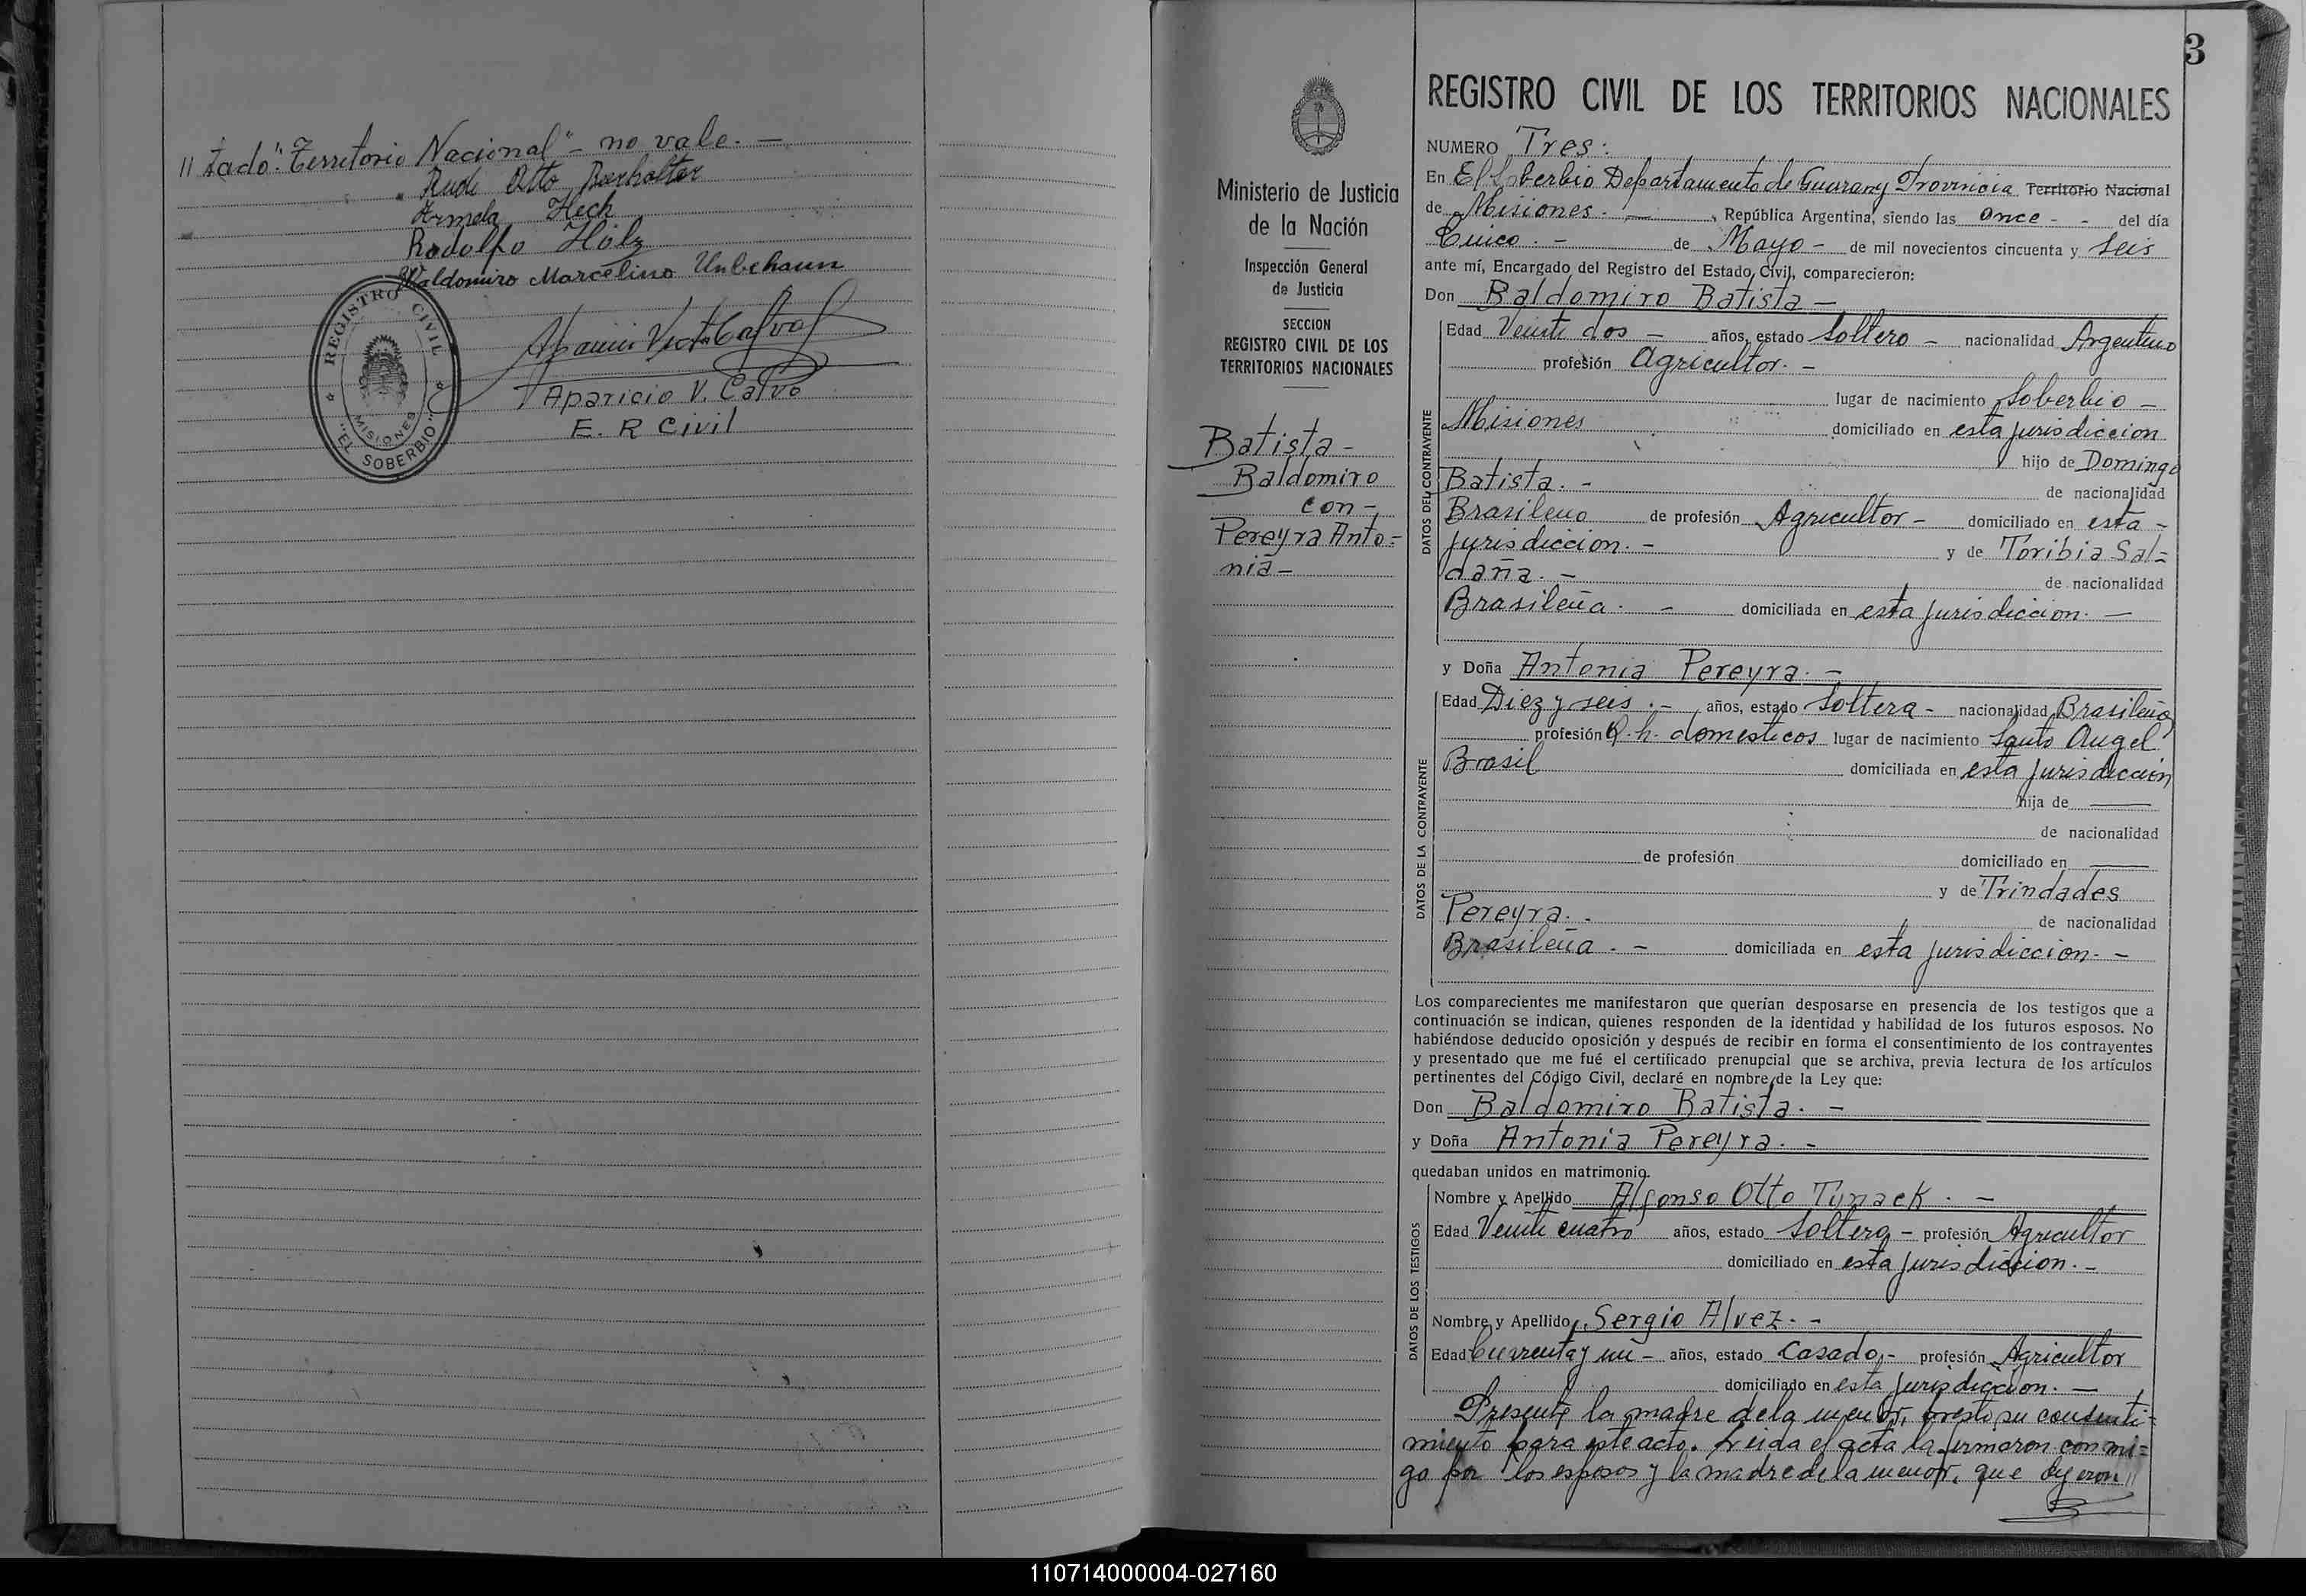 // tado": "Territorio Nacional" - no vale. -
Armela Hech
Rodolfo Hölz
Waldomiro Marcelino Unbehaun
REGISTRO CIVIL
MISIONES
"EL SOBERBIO"
Aparicio V. Calvo
E. R Civil
3
Ministerio de Justicia
de la Nación
Inspección General
de Justicia
SECCION
REGISTRO CIVIL DE LOS
TERRITORIOS NACIONALES
Batista -
Baldomiro
con -
Pereyra Anto=
nia -
REGISTRO CIVIL DE LOS TERRITORIOS NACIONALES
NUMERO Tres:
En El Soberbio Departamento de Guarany Provincia Territorio Nacional
de Misiones. - , República Argentina, siendo las once - - del día
Cinco. - de Mayo - de mil novecientos cincuenta y seis
ante mí, Encargado del Registro del Estado Civil, comparecieron:
Don Baldomiro Batista -
DATOS DEL CONTRAYENTE
Edad Veinte dos - años, estado Soltero - nacionalidad Argentino
profesión Agricultor. -
lugar de nacimiento Soberbio -
Misiones domiciliado en esta jurisdiccion
hijo de Domingo
Batista. - de nacionalidad
Brasileno de profesión Agricultor - domiciliado en esta -
jurisdiccion. - y de Toribia Sal=
daña. - de nacionalidad
Brasileña. - domiciliada en esta jurisdiccion. -
y Doña Antonia Pereyra. -
DATOS DE LA CONTRAYENTE
Edad Diez y seis. - años, estado Soltera - nacionalidad Brasileña
profesión Q. h. domesticos lugar de nacimiento Santo Angel
Brasil domiciliada en esta jurisdicción
hija de
de nacionalidad
de profesión domiciliado en
y de Trindades
Pereyra. - de nacionalidad
Brasileña. - domiciliada en esta jurisdiccion. -
Los comparecientes me manifestaron que querían desposarse en presencia de los testigos que a
continuación se indican, quienes responden de la identidad y habilidad de los futuros esposos. No
habiéndose deducido oposición y después de recibir en forma el consentimiento de los contrayentes
y presentado que me fué el certificado prenupcial que se archiva, previa lectura de los artículos
pertinentes del Código Civil, declaré en nombre de la Ley que:
Don Baldomiro Batista. -
y Doña Antonia Pereyra. -
quedaban unidos en matrimonio.
DATOS DE LOS TESTIGOS
Nombre y Apellido Alfonso Otto Tunack. -
Edad Veinte cuatro años, estado Soltero - profesión Agricultor
domiciliado en esta jurisdiccion. -
Nombre y Apellido Sergio Alvez. -
Edad Cuarenta y un - años, estado Casado, - profesión Agricultor
domiciliado en esta jurisdiccion. -
Presente la madre de la menor, presto su consenti=
miento para este acto. Leida el acta la firmaron conmi=
go por los esposos y la madre de la menor, que dijeron //
110714000004-027160